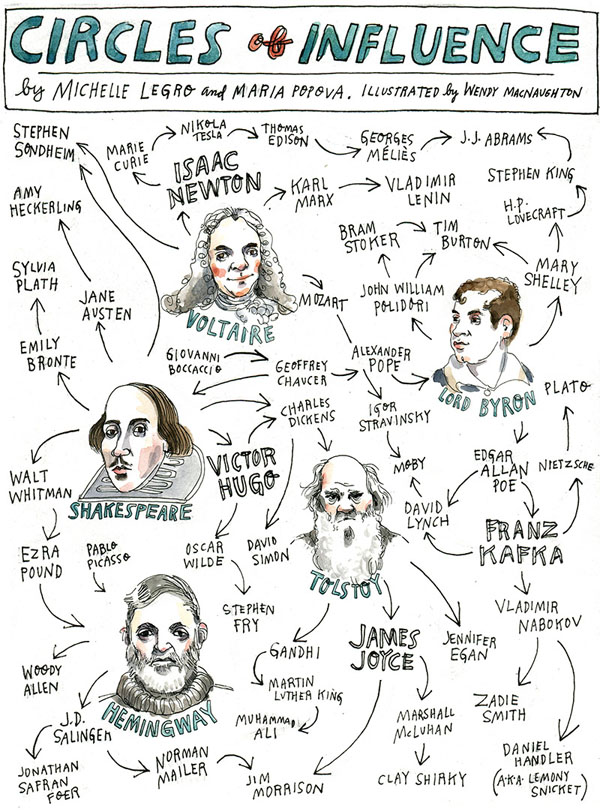 CIRCLES of INFLUENCE
by MICHELLE LEGRO and MARIA POPOVA. ILLUSTRATED by WENDY MACNAUGHTON
STEPHEN
SONDHEIM
MARIE
CURIE
NIKOLA
TESLA
THOMAS
EDISON
GEORGES
MÉLIÈS
J.J. ABRAMS
ISAAC
NEWTON
KARL
MARX
VLADIMIR
LENIN
STEPHEN KING
AMY
HECKERLING
H.P.
LOVECRAFT
BRAM
STOKER
TIM
BURTON
SYLVIA
PLATH
JANE
AUSTEN
VOLTAIRE
MOZART
JOHN WILLIAM
POLIDORI
MARY
SHELLEY
EMILY
BRONTE
GIOVANNI
BOCCACCIO
GEOFFREY
CHAUCER
ALEXANDER
POPE
LORD BYRON
PLATO
CHARLES
DICKENS
IGOR
STRAVINSKY
WALT
WHITMAN
SHAKESPEARE
VICTOR
HUGO
MOBY
EDGAR
ALLAN
POE
NIETZSCHE
DAVID
LYNCH
FRANZ
KAFKA
EZRA
POUND
PABLO
PICASSO
OSCAR
WILDE
DAVID
SIMON
TOLSTOY
STEPHEN
FRY
VLADIMIR
NABOKOV
WOODY
ALLEN
HEMINGWAY
GANDHI
JAMES
JOYCE
JENNIFER
EGAN
MARTIN
LUTHER KING
ZADIE
SMITH
J.D.
SALINGER
MUHAMMAD
ALI
MARSHALL
MCLUHAN
JONATHAN
SAFRAN
FOER
NORMAN
MAILER
JIM
MORRISON
CLAY SHIRKY
DANIEL
HANDLER
(A.K.A. LEMONY
SNICKET)